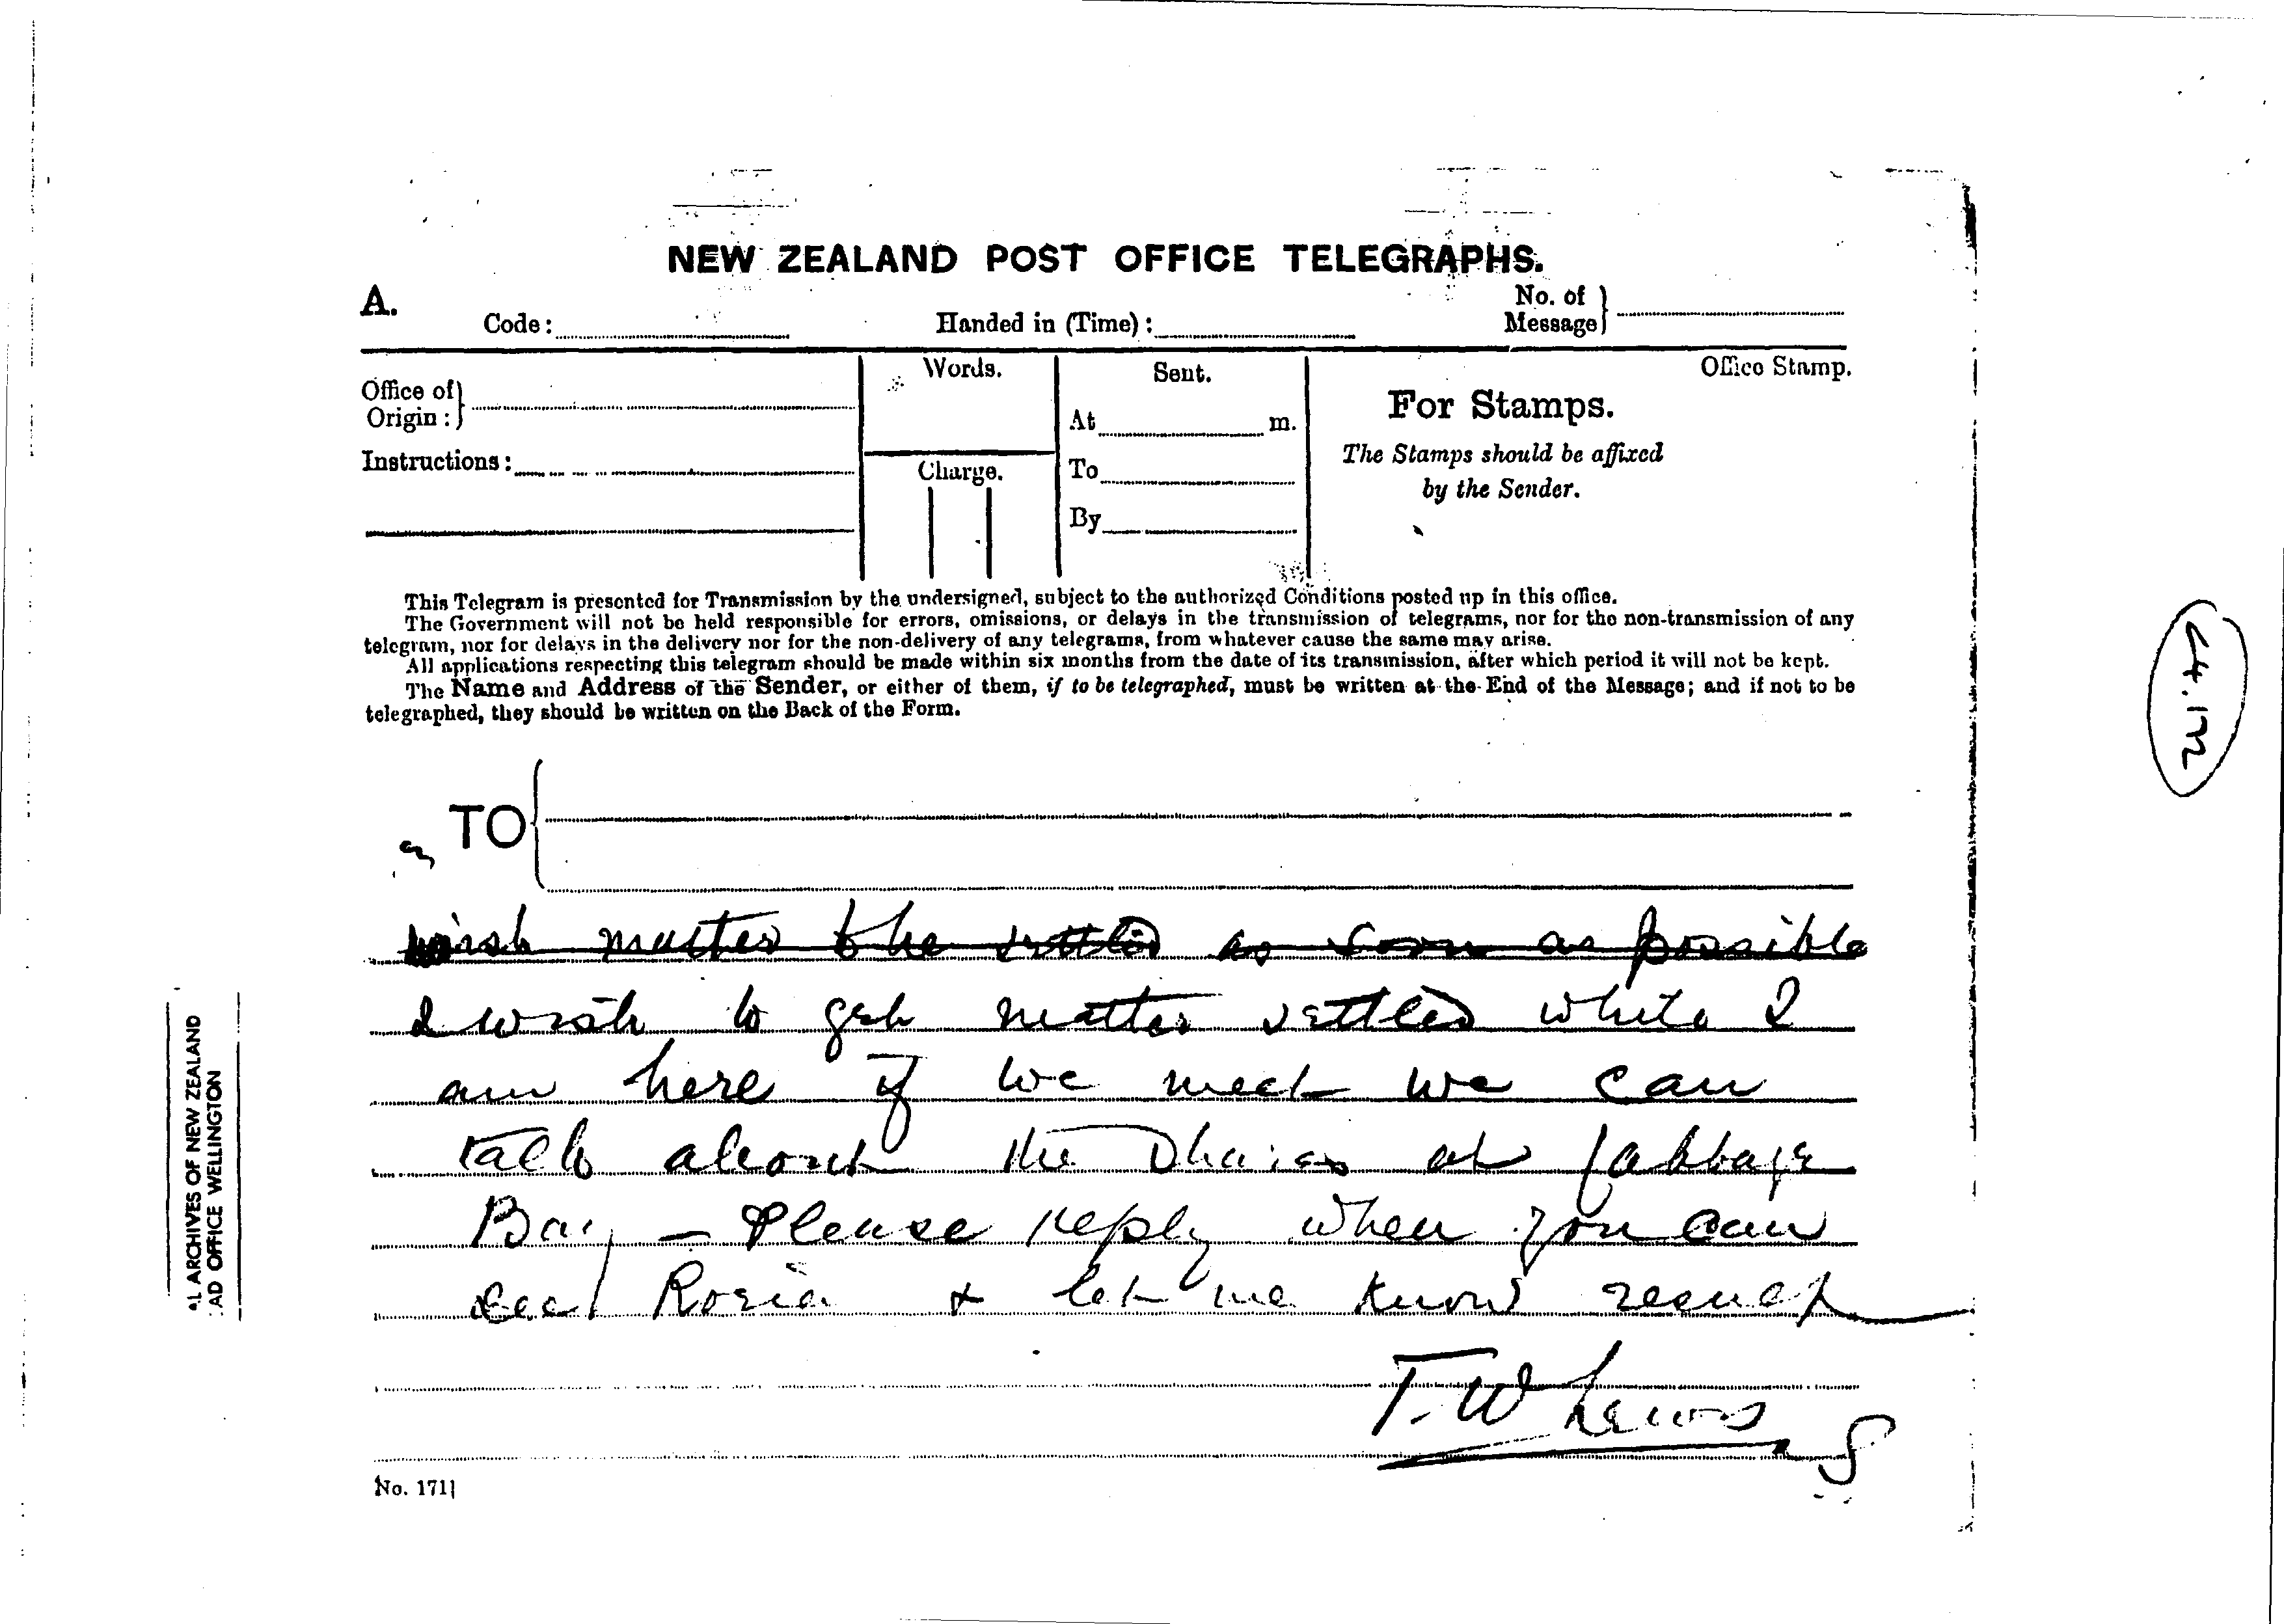 NEW ZEALAND POST OFFICE TELEGRAPHS.
A.
Code: Handed in (Time): No. of Message
Office of Origin:
Instructions:
Words.
Charge.
Sent.
At m.
To
By
For Stamps.
The Stamps should be affixed
by the Sender.
Office Stamp.
This Telegram is presented for Transmission by the undersigned, subject to the authorized Conditions posted up in this office.
The Government will not be held responsible for errors, omissions, or delays in the transmission of telegrams, nor for the non-transmission of any
telegram, nor for delays in the delivery nor for the non-delivery of any telegrams, from whatever cause the same may arise.
All applications respecting this telegram should be made within six months from the date of its transmission, after which period it will not be kept.
The Name and Address of the Sender, or either of them, if to be telegraphed, must be written at the End of the Message; and if not to be
telegraphed, they should be written on the Back of the Form.
TO
wish matter to be settled as soon as possible
I wish to get matter settled while I
am here if we meet we can
talk about the Shares at Cabbage
Bay - Please reply when you can
see Rosia & let me know
T. W Lewis
No. 171
AL ARCHIVES OF NEW ZEALAND
AD OFFICE WELLINGTON